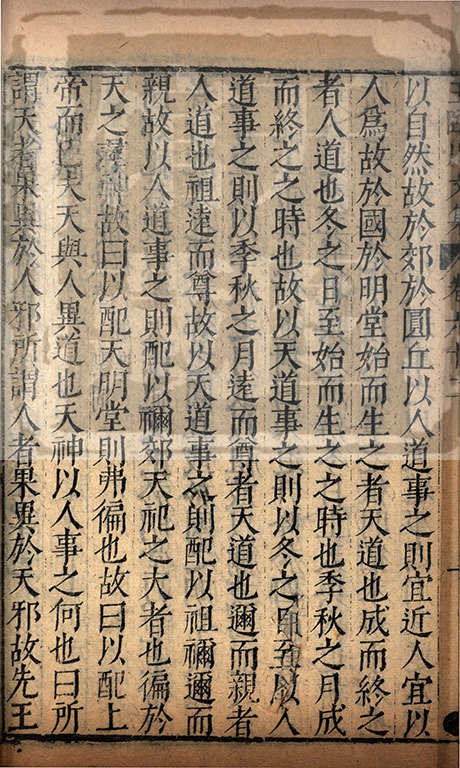 以自然故於郊於圓丘以人道事之則宜近人宜以
人爲故於國於明堂始而生之者天道也成而終之
者人道也冬之日至始而生之之時也季秋之月成
而終之之時也故以天道事之則以冬之日至以人
道事之則以季秋之月遠而尊者天道也邇而親者
人道也祖遠而尊故以天道事之則配以祖禰邇而
親故以人道事之則配以禰郊天祀之大者也徧於
天之羣神故曰以配天明堂則弗徧也故曰以配上
帝而已矣天與人異道也天神以人事之何也曰所
謂天者果異於人邪所謂人者果異於天邪故先王